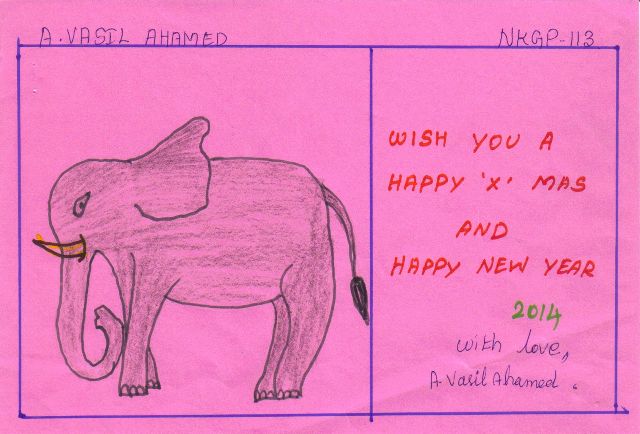 A. VASIL AHAMED
NKGP-113
WISH YOU A
HAPPY 'X' MAS
AND
HAPPY NEW YEAR
2014
with love,
A. Vasil Ahamed.